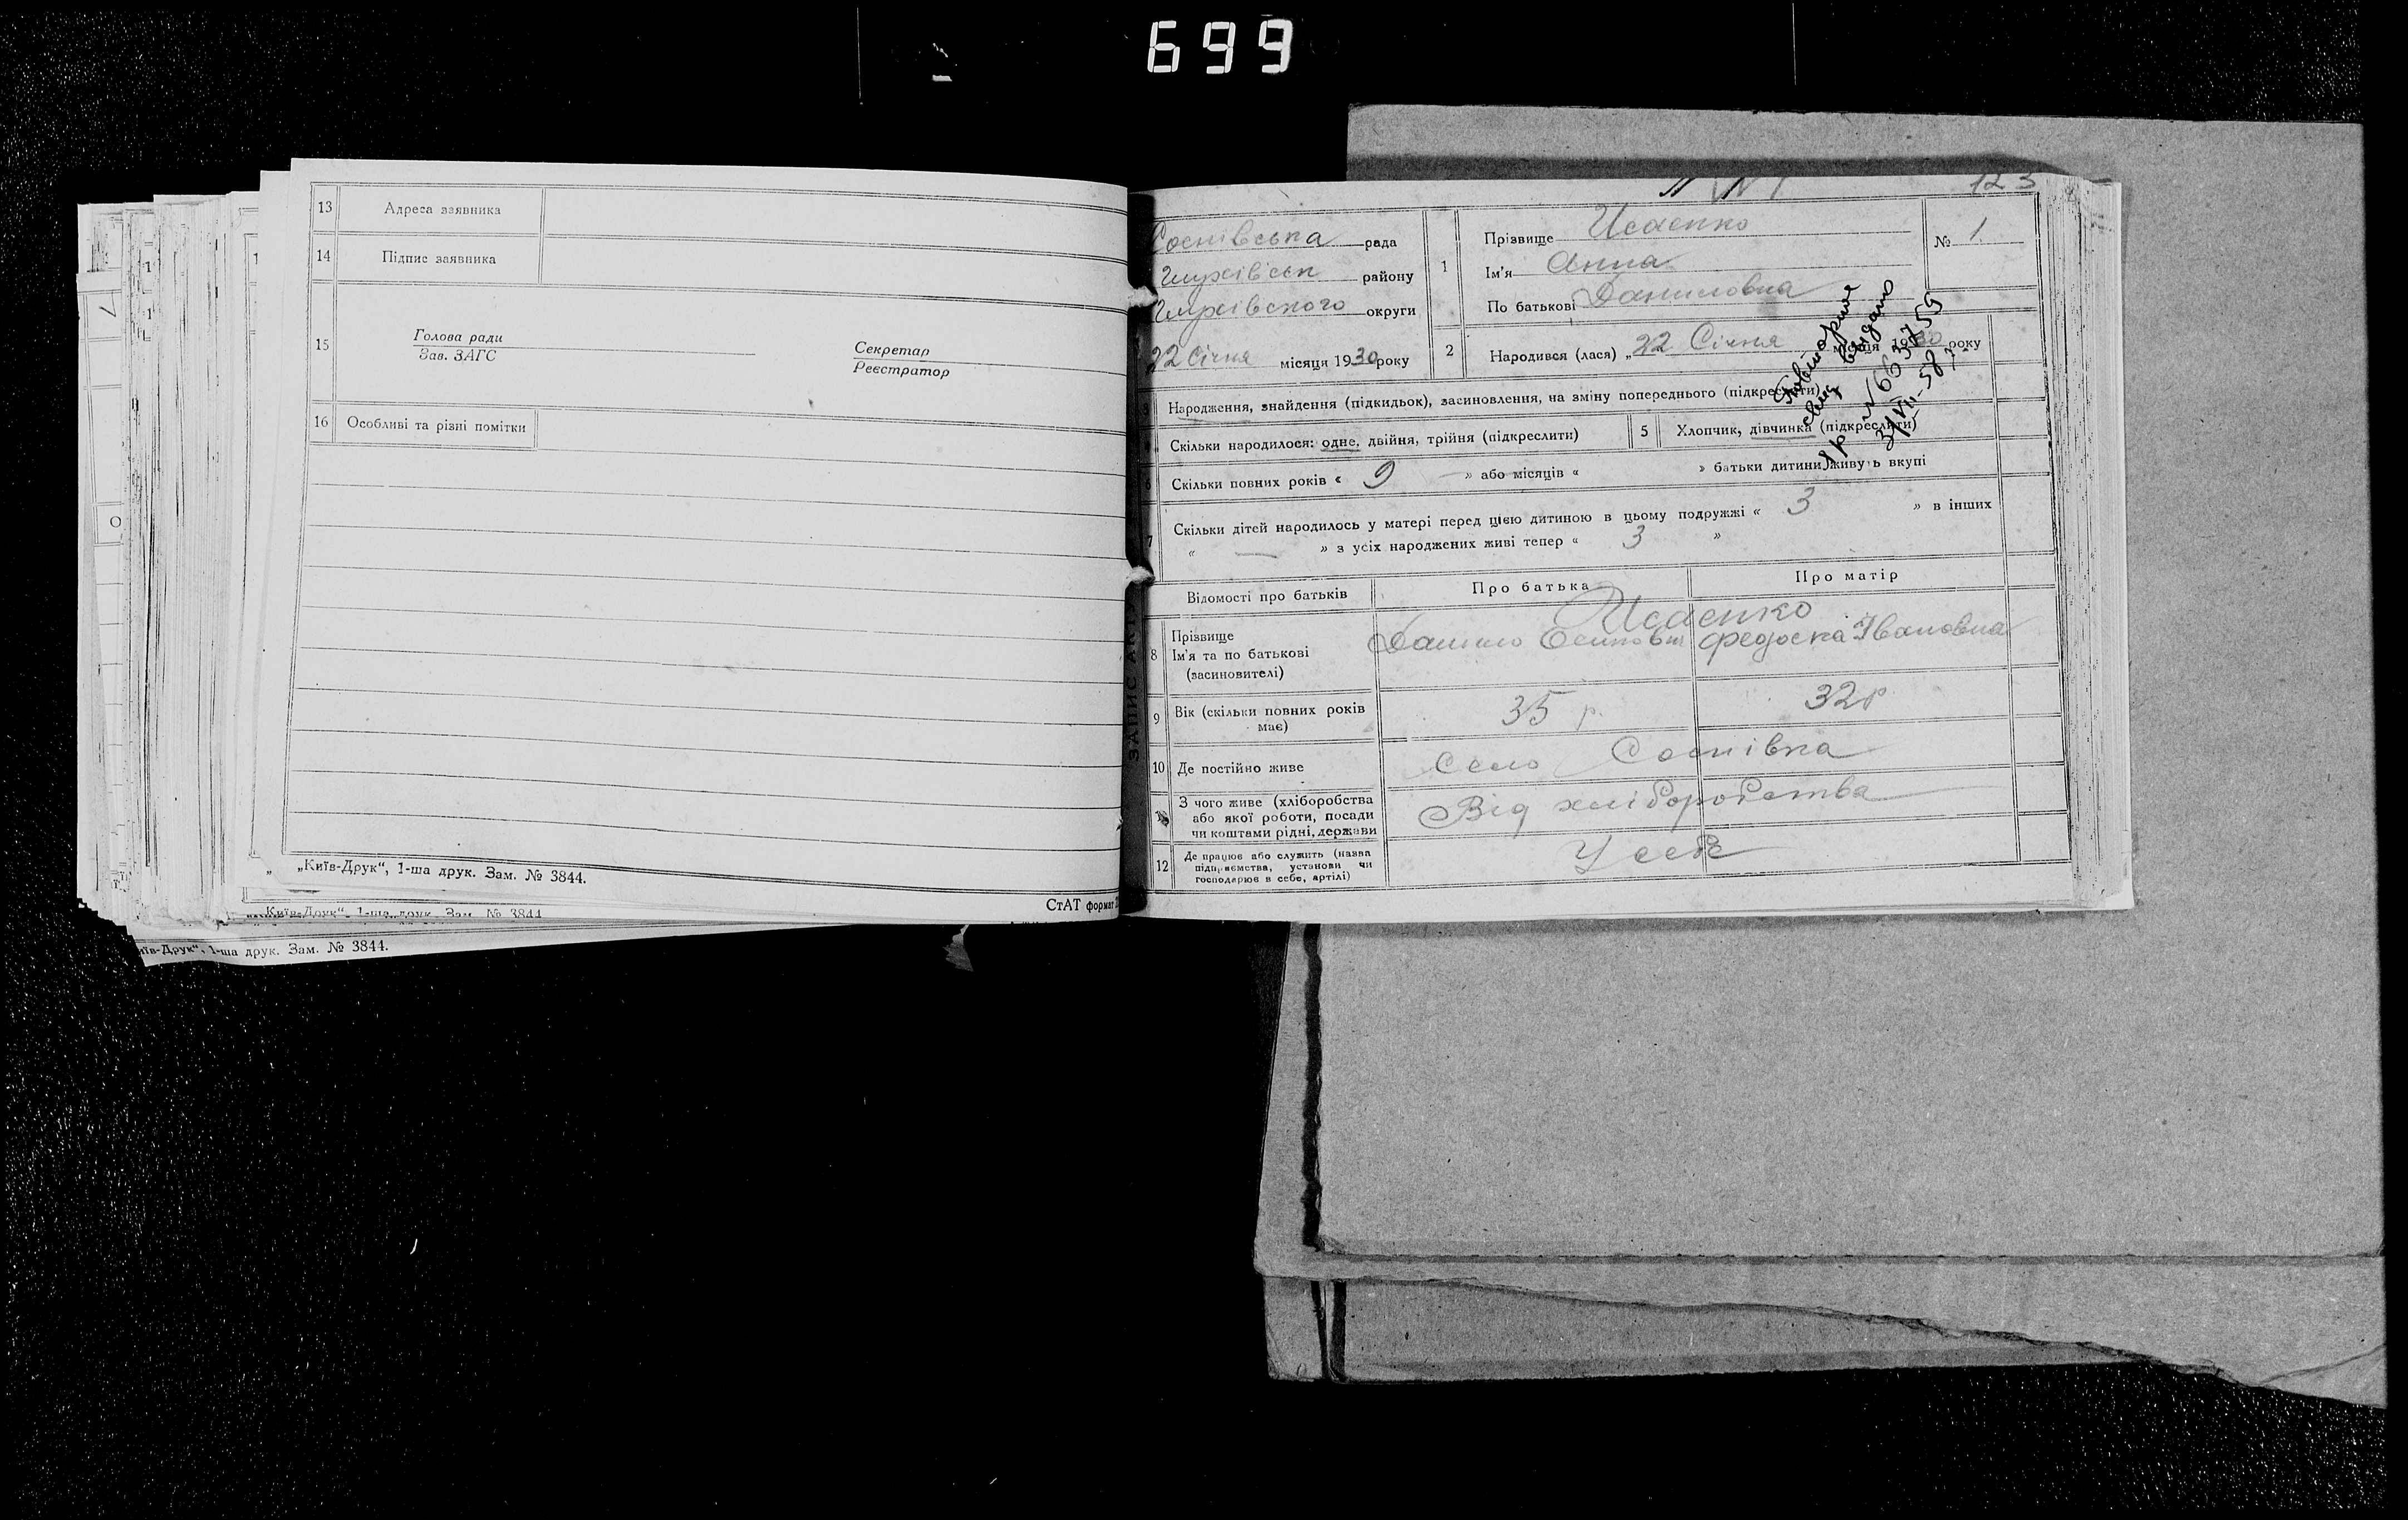 699
13 Адреса заявника
14 Підпис заявника
15 Голова ради
Зав. ЗАГС
Секретар
Реєстратор
16 Особливі та різні помітки
„Київ-Друк“, 1-ша друк. Зам. № 3844.
СтАТ формат
„Київ-Друк“, 1-ша друк. Зам. № 3844
їв-Друк“, 1-ша друк. Зам. № 3844.
ЗАПИС АКТ
№ 1
123
Соснівська рада
району
Глухівського округи
22 Січня місяця 1930 року
1 Прізвище Исаенко
Ім'я Анна
По батькові Даниловна
№ 1.
2 Народився (лася) „22 Січня місяця 1930 року
Повторне
свид видано
66 3755
3/VII-58 г.
3 Народження, знайдення (підкидьок), засиновлення, на зміну попереднього (підкреслити)
4 Скільки народилося: одне, двійня, трійня (підкреслити)
5 Хлопчик, дівчинка (підкреслити)
6 Скільки повних років « 9 » або місяців « » батьки дитини живуть вкупі
7 Скільки дітей народилось у матері перед цією дитиною в цьому подружжі « 3 » в інших
« — » з усіх народжених живі тепер « 3 »
Відомості про батьків
Про батька
Про матір
8 Прізвище
Ім'я та по батькові
(засиновителі)
Исаенко
Данило Осипович Федоска Івановна
9 Вік (скільки повних років
має)
35 р.
32 р
10 Де постійно живе
Село Соснівка
11 З чого живе (хліборобства
або якої роботи, посади
чи коштами рідні, держави
Від хліборобства
12 Де працює або служить (назва
підприємства, установи чи
господарює в себе, артілі)
У себе